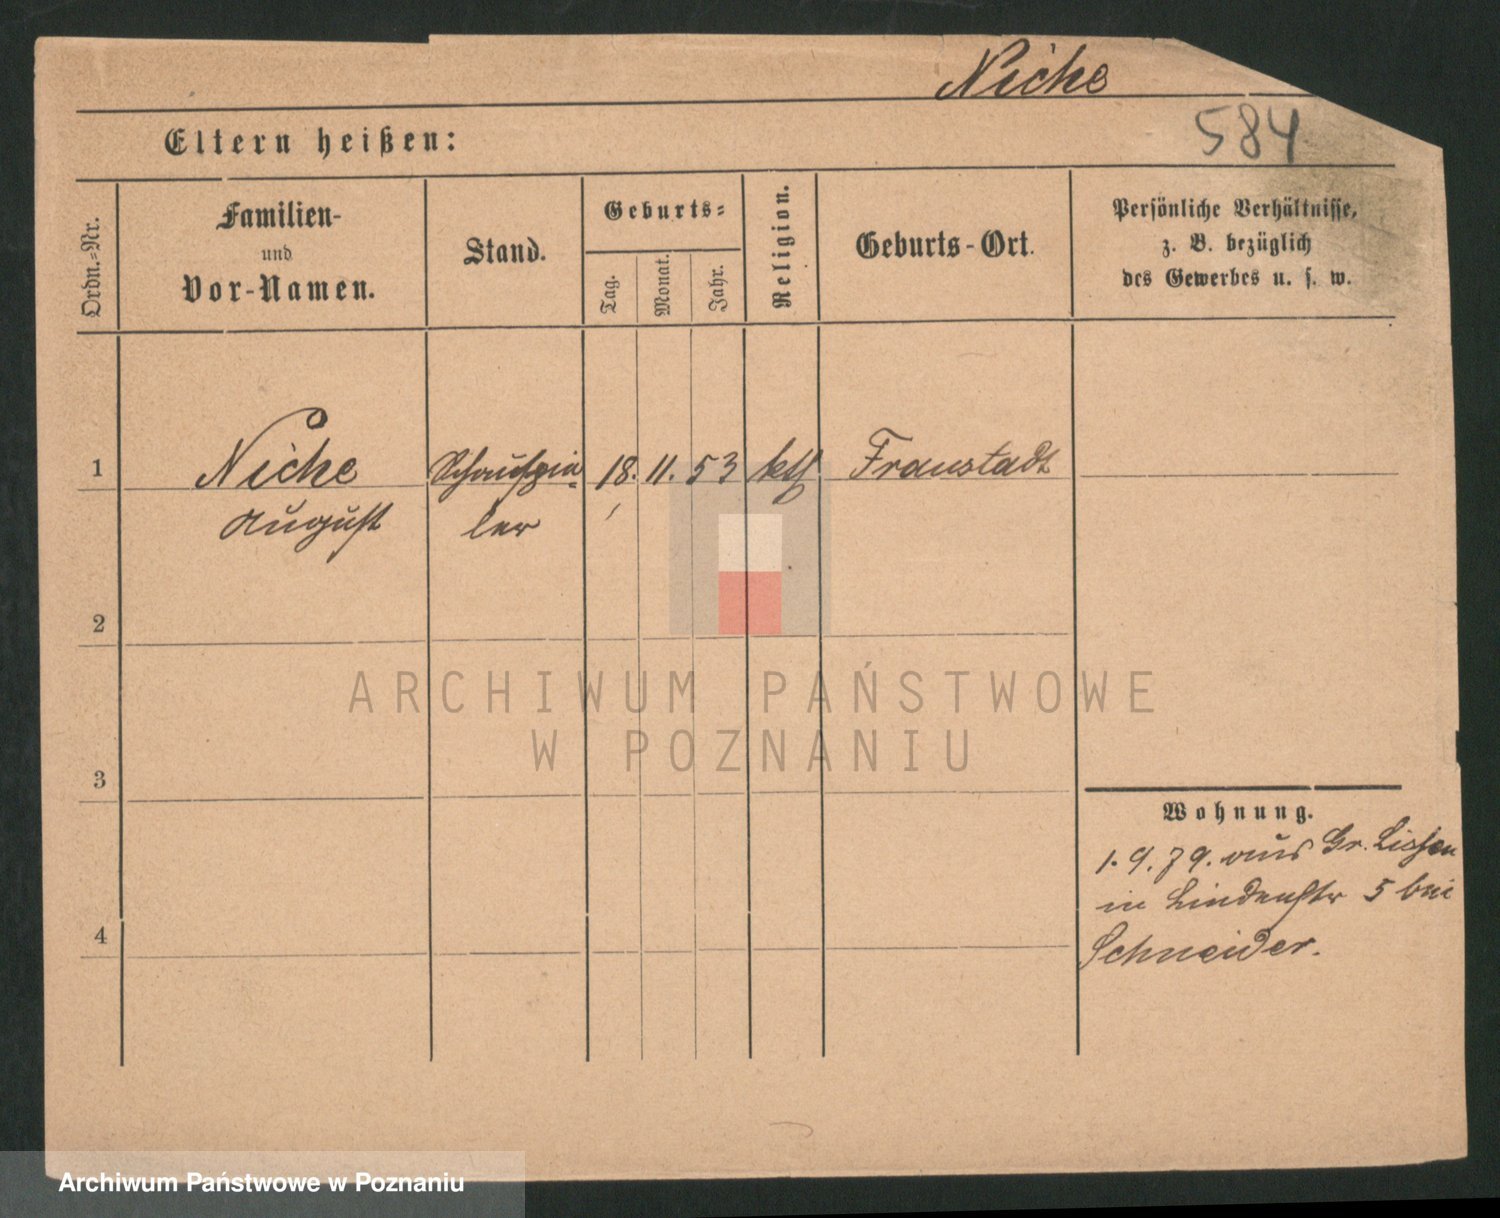 Niche
584
Eltern heißen:
Ordn.-Nr.
Familien-
und
Vor-Namen.
Stand.
Geburts-
Tag.
Monat.
Jahr.
Religion.
Geburts-Ort.
Persönliche Verhältnisse,
z. B. bezüglich
des Gewerbes u. s. w.
1
Niche
August
Schauspie-
ler
18. 11. 53
kth
Fraustadt
2
3
4
ARCHIWUM PAŃSTWOWE
W POZNANIU
Wohnung.
1. 9. 79. aus Gr. Lissen
in Lindenstr 5 bei
Schneider.
Archiwum Państwowe w Poznaniu